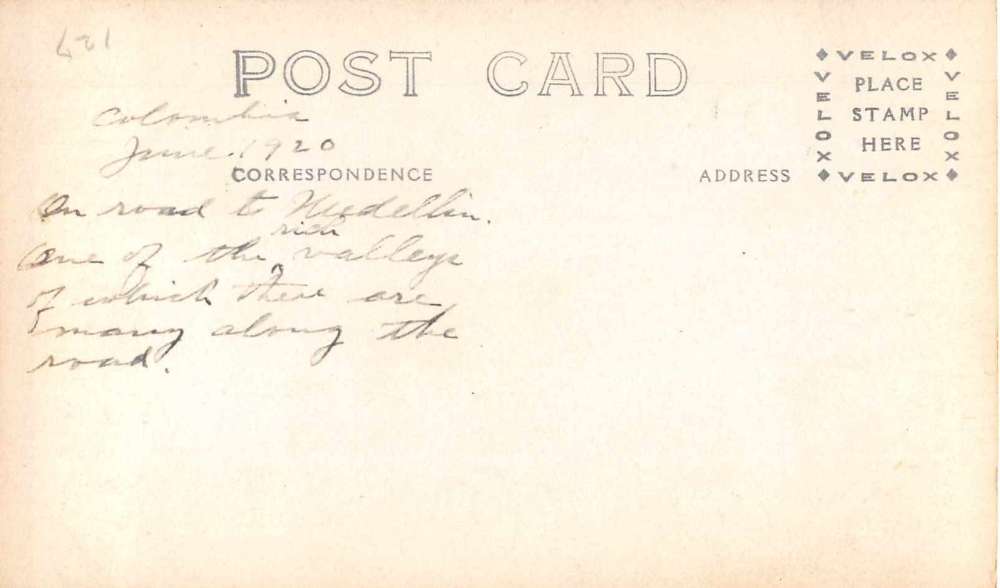 POST CARD
Colombia
June. 1920
CORRESPONDENCE
ADDRESS
VELOX
VELOX
PLACE
STAMP
HERE
VELOX
VELOX
On road to Medellin.
One of the rich valleys
of which there are
many along the
road.